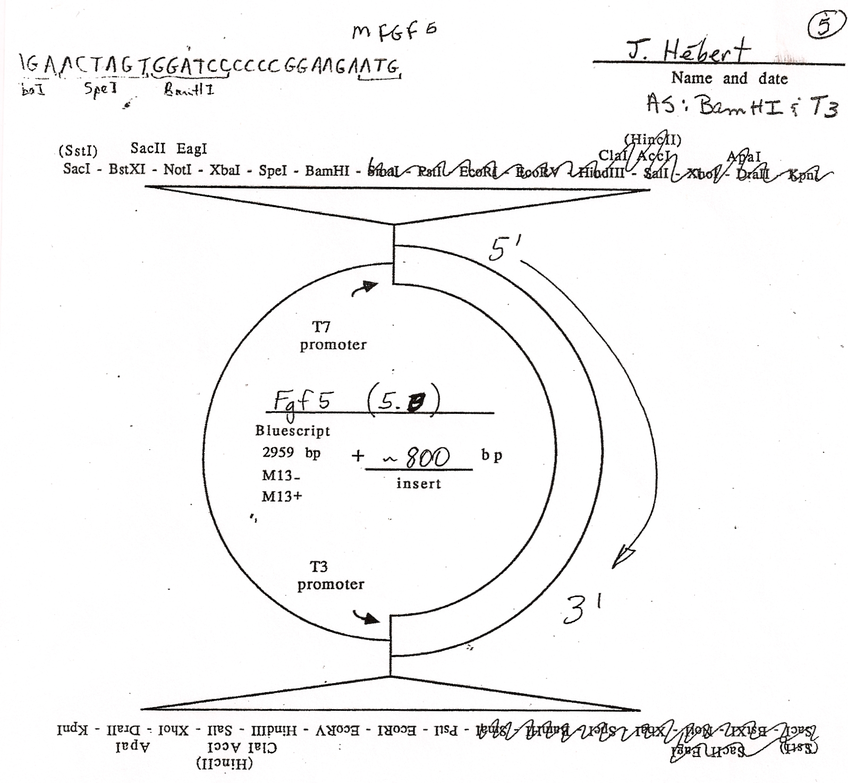 m FGF 5
5
IGAACTAGTGGATCCCCCCGGAAGAATG
J. Hébert
Name and date
baI SpeI BamHI
AS: BamHI & T3
(SstI) SacII EagI (HincII)
ClaI AccI ApaI
SacI - BstXI - NotI - XbaI - SpeI - BamHI - SmaI - PstI - EcoRI - EcoRV - HindIII - SalI - XhoI - DraII - KpnI
5'
T7
promoter
Fgf5 (5.)
Bluescript
2959 bp + ~800 bp
M13- insert
M13+
T3
promoter
3'
KpnI - DraII - XhoI - SalI - HindIII - EcoRV - EcoRI - PstI - SmaI - BamHI - SpeI - XbaI - NotI - BstXI - SacI
ApaI AccI ClaI EagI SacII (SstI)
(HincII)